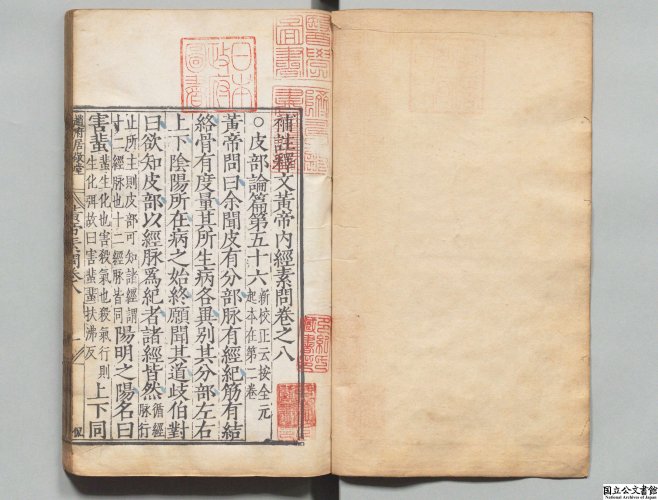 補註釋文黃帝內經素問卷之八
○皮部論篇第五十六 新校正云按全元
起本在第二卷
黃帝問曰余聞皮有分部脉有經紀筋有結
絡骨有度量其所生病各異別其分部左右
上下陰陽所在病之始終願聞其道歧伯對
曰欲知皮部以經脉爲紀者諸經皆然 循經
脉行
止所主則皮部可知諸經謂
十二經脉也十二經脉皆同 陽明之陽名曰
害蜚 蜚生化也害殺氣也殺氣行則
生化弭故曰害蜚蜚扶沸反 上下同
趙府居敬堂
黃帝素問卷八
日本
政府
圖書
国立公文書館
National Archives of Japan